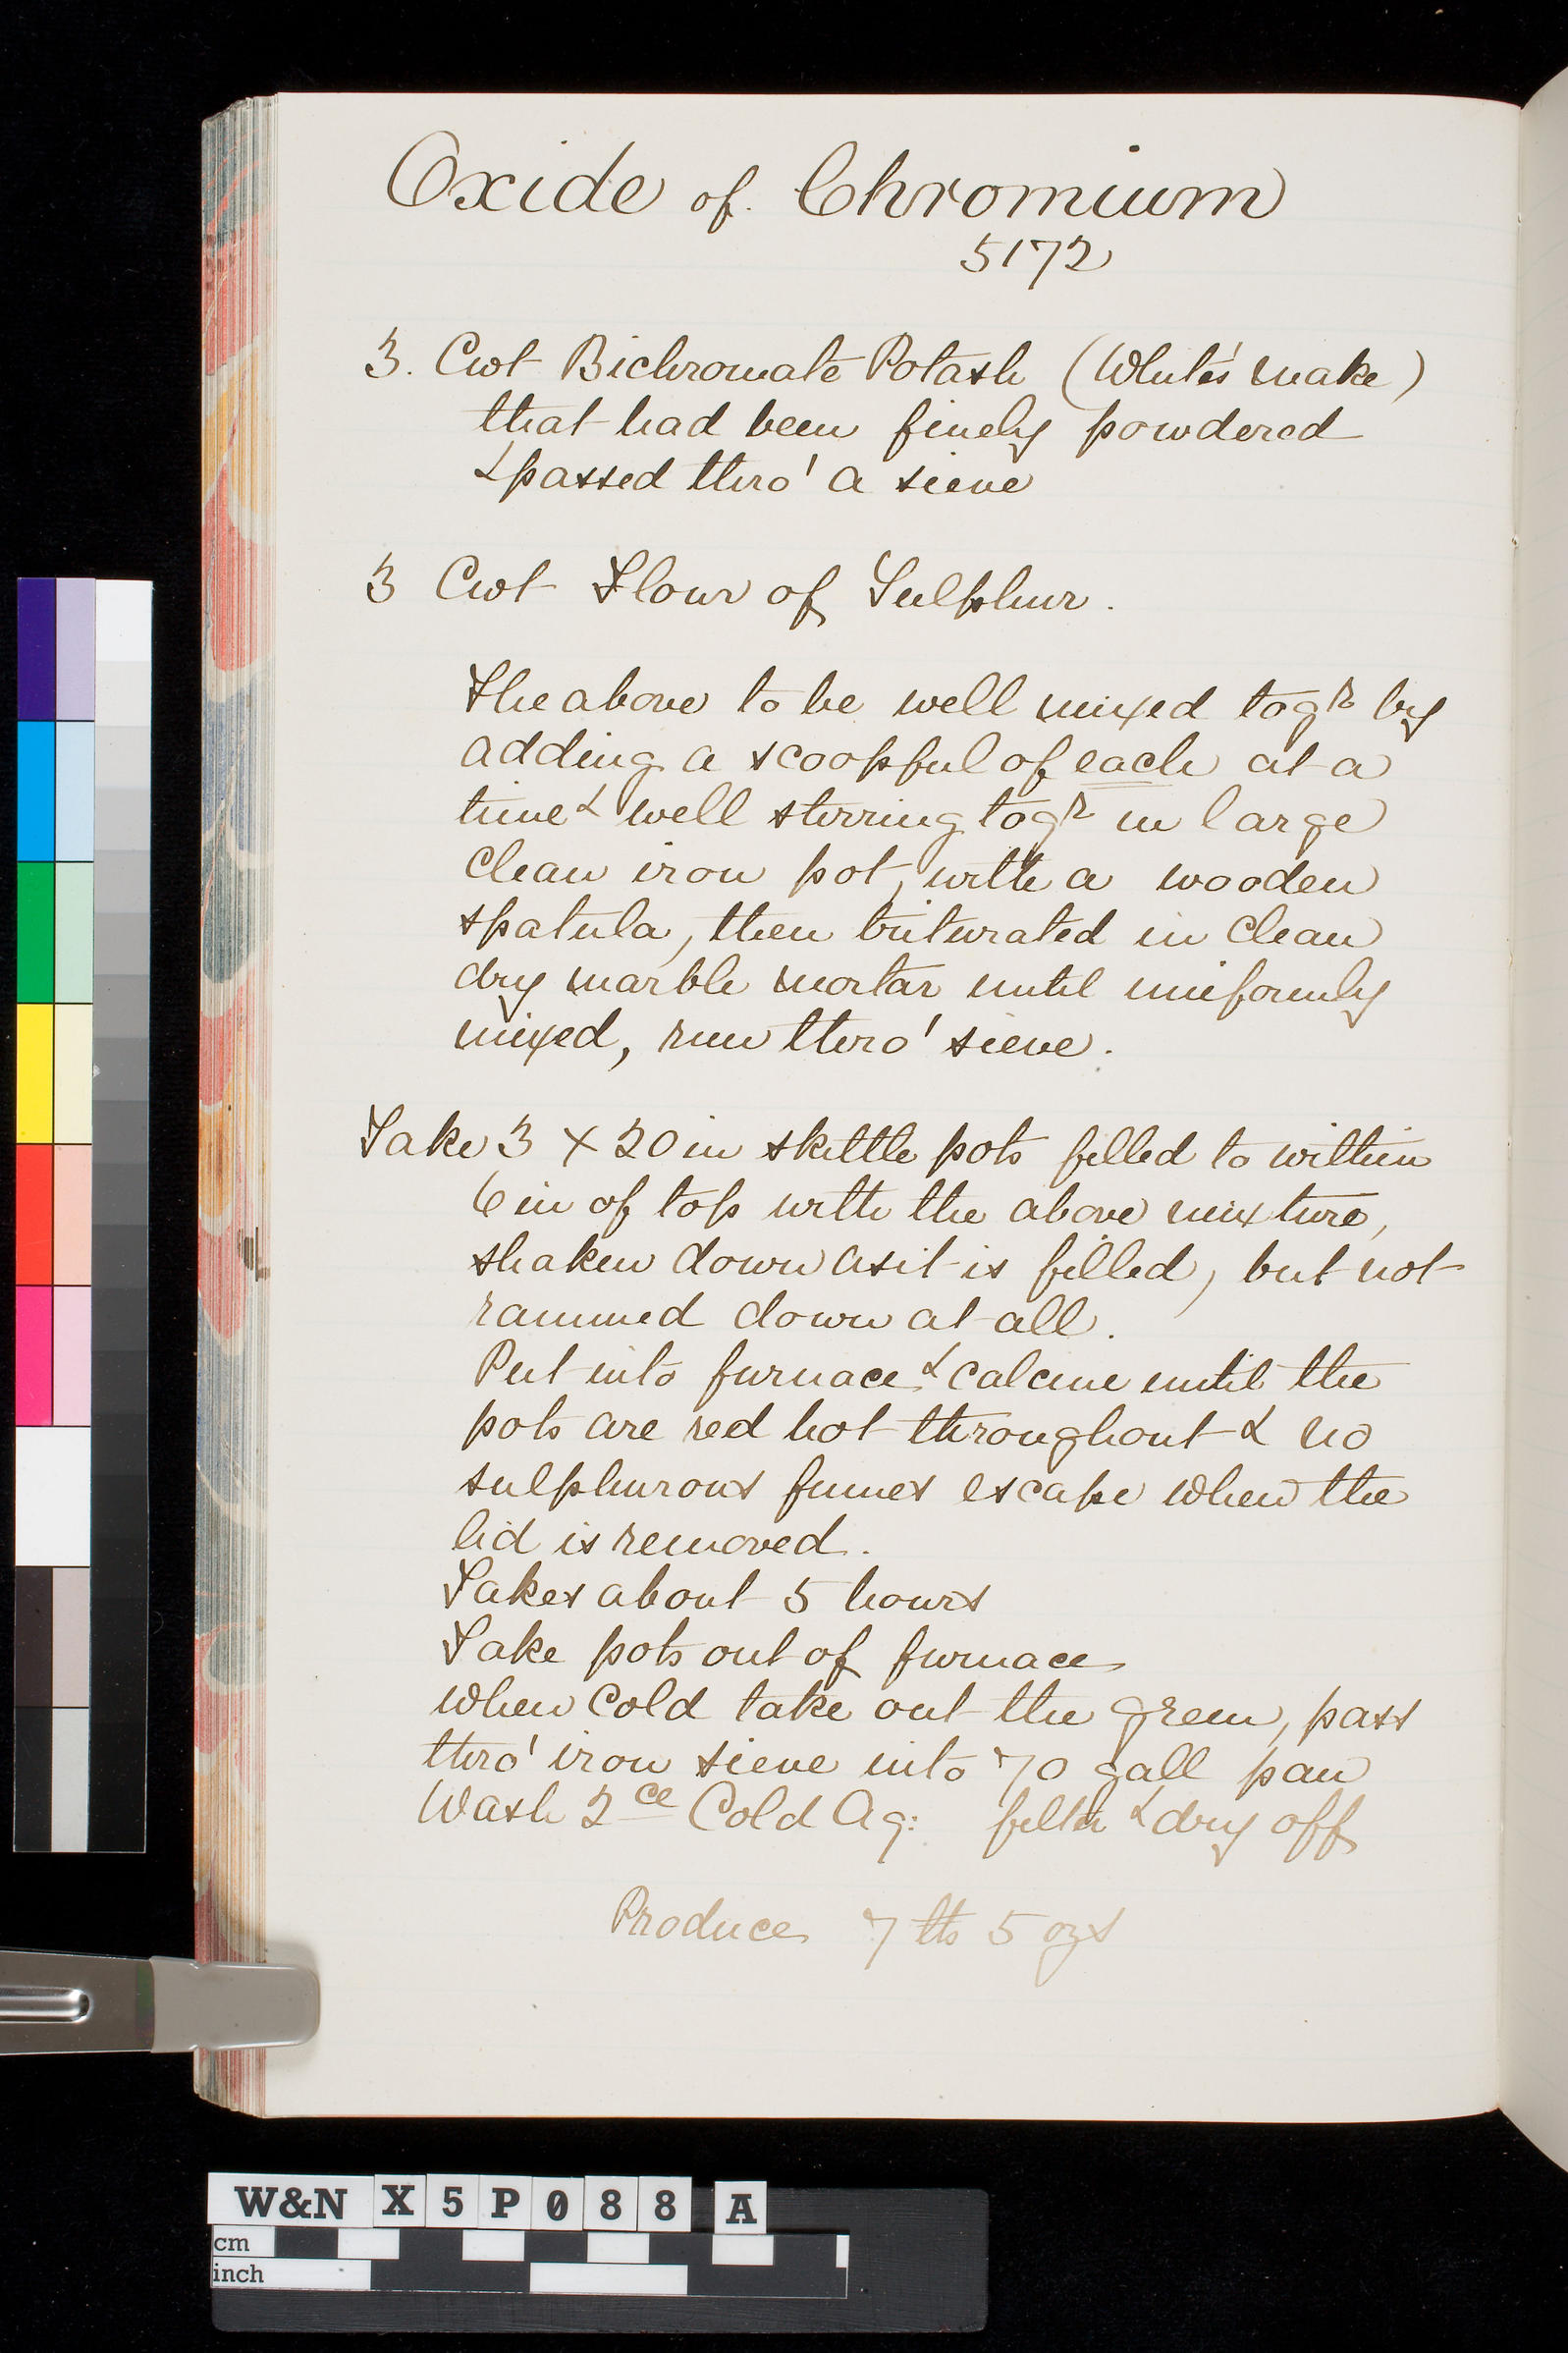 Oxide of Chromium
5172
3. Cwt Bichromate Potash (White's make)
that had been finely powdered
& passed thro' a sieve
3 Cwt Flour of Sulphur.
The above to be well mixed togr by
adding a scoopful of each at a
time & well stirring togr in large
clean iron pot, with a wooden
spatula, then triturated in clean
dry marble mortar until uniformly
mixed, run thro' sieve.
Take 3 x 20 in skittle pots filled to within
6 in of top with the above mixture,
shaken down as it is filled, but not
rammed down at all.
Put into furnace & calcine until the
pots are red hot throughout & no
sulphurous fumes escape when the
lid is removed.
Takes about 5 hours
Take pots out of furnace
when cold take out the green, pass
thro' iron sieve into 70 gall pan
Wash 2ce Cold Aq: filter & dry off
Produce 7 lbs 5 ozs
W&N X5P088 A
cm
inch